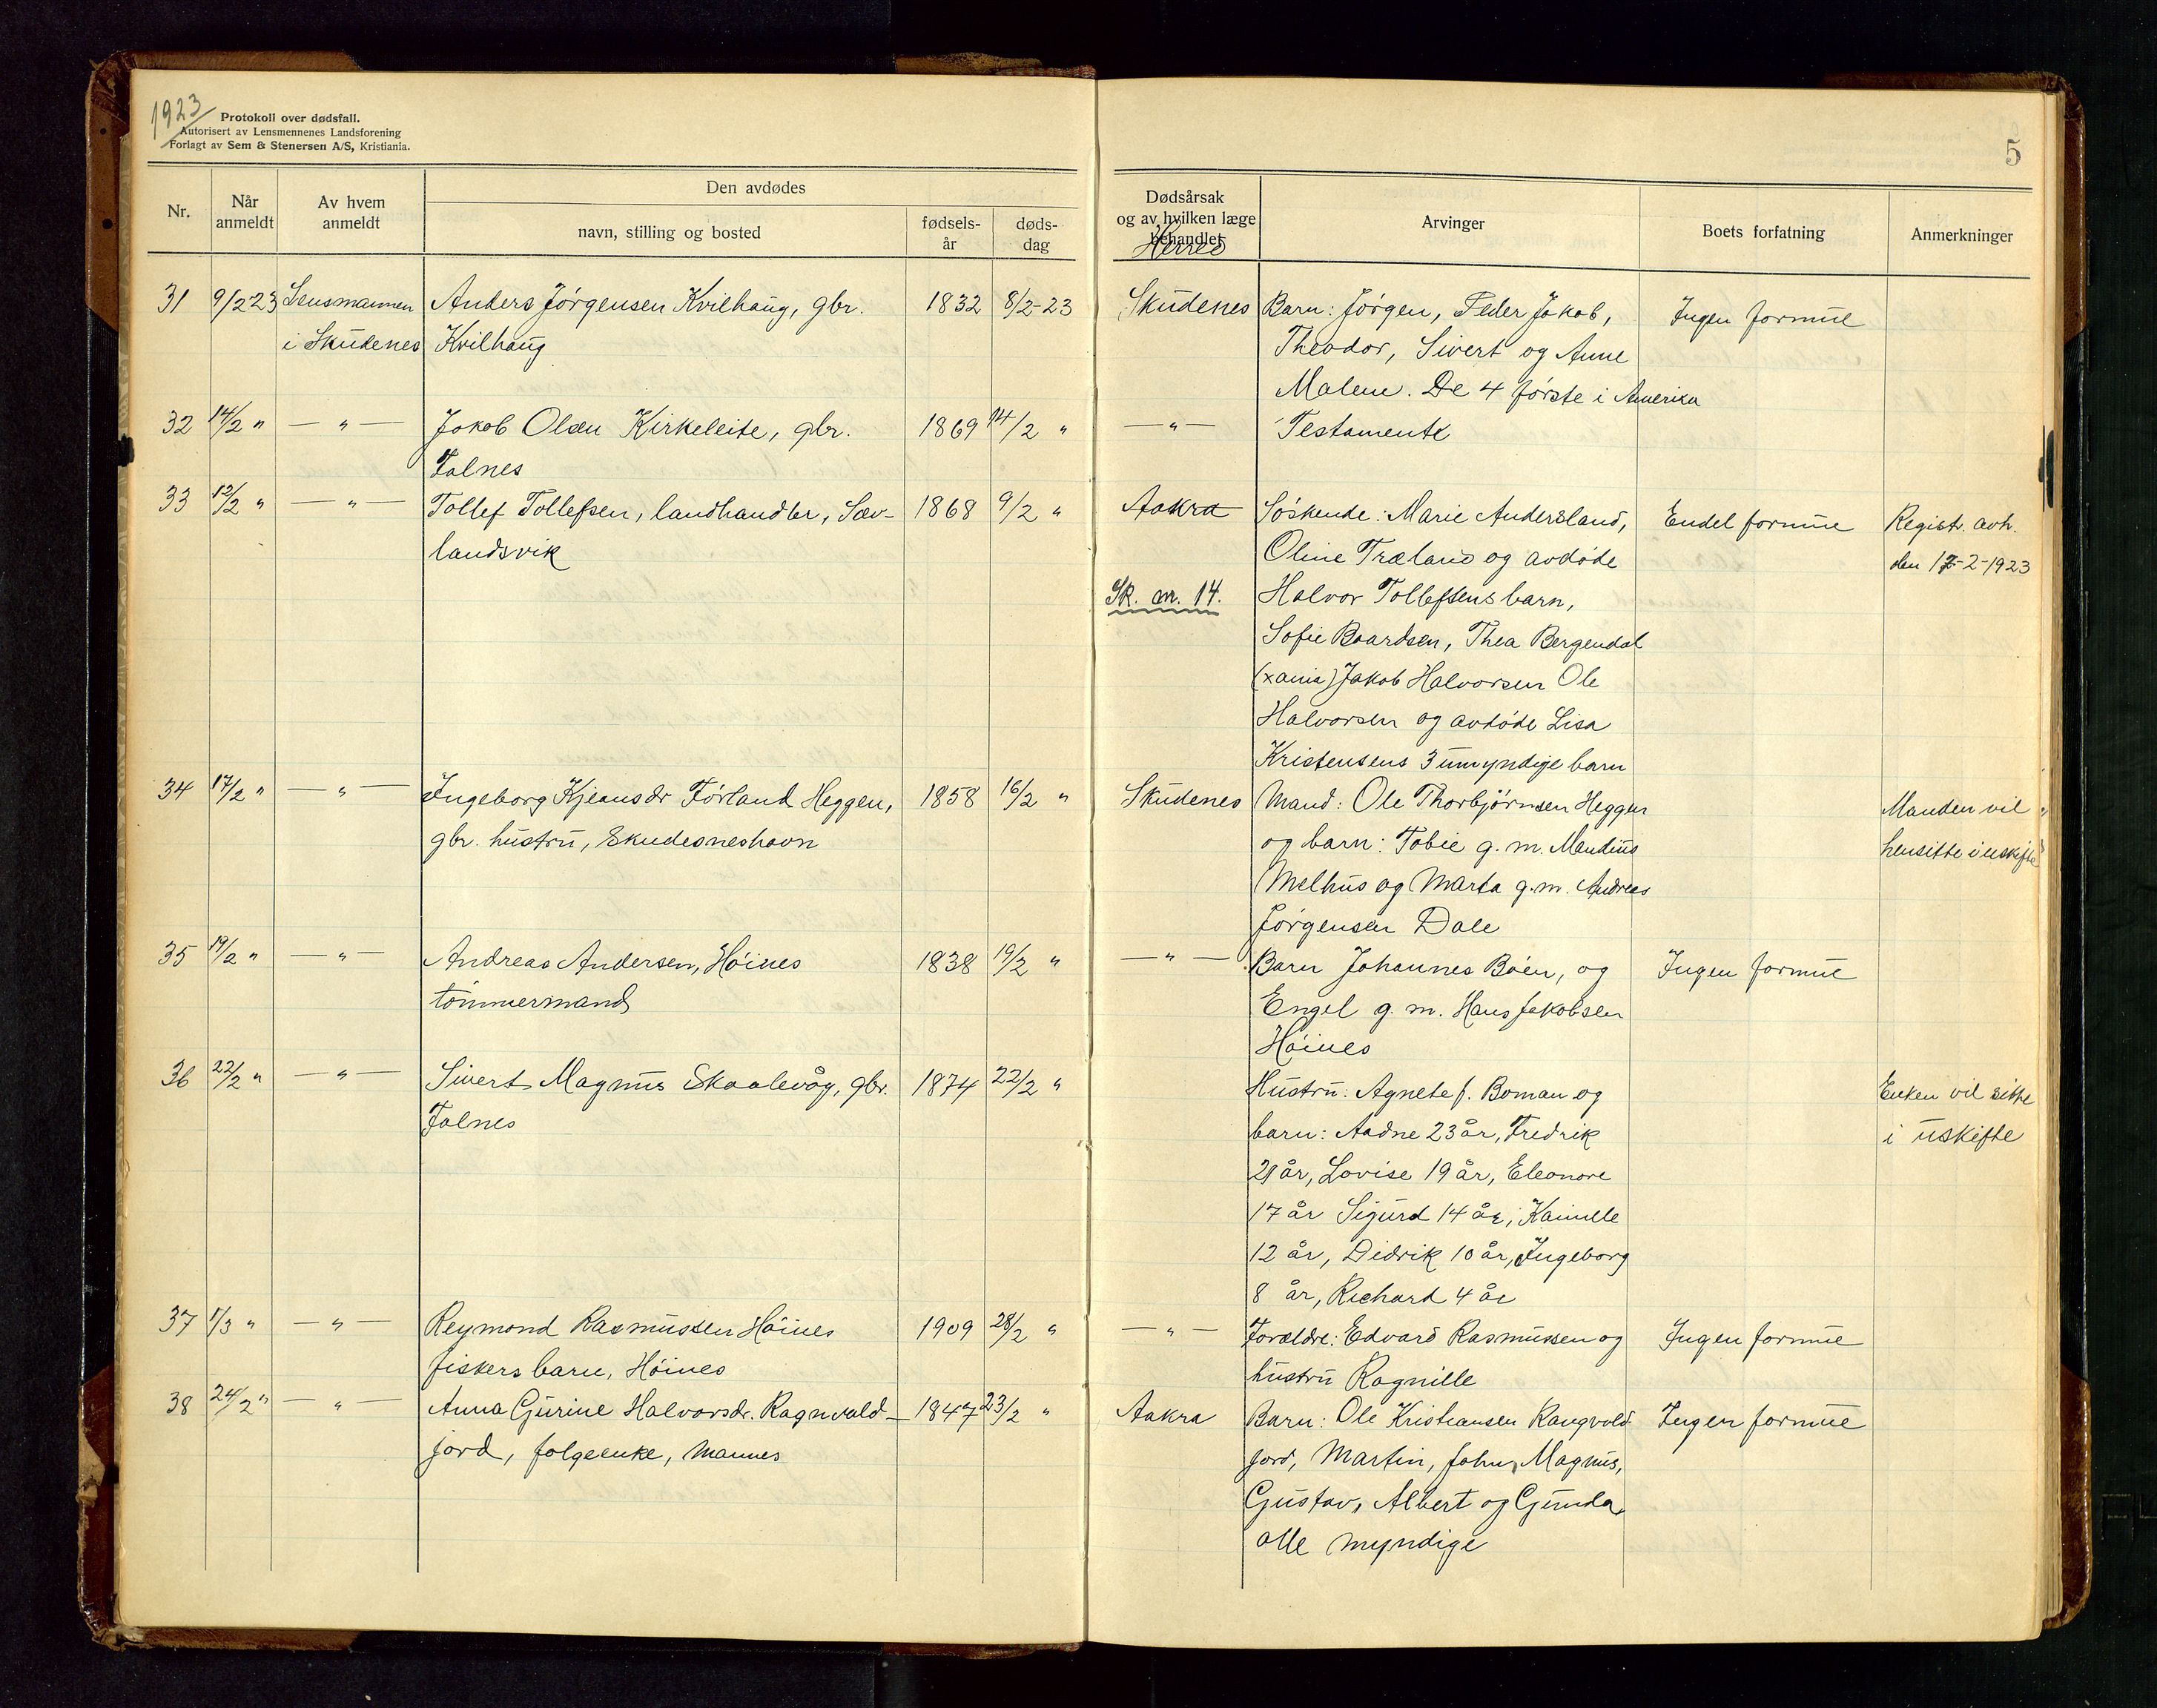 1923
Protokoll over dødsfall.
Autorisert av Lensmennenes Landsforening
Forlagt av Sem & Stenersen A/S, Kristiania.
5
Nr.
Når anmeldt
Av hvem anmeldt
Den avdødes
navn, stilling og bosted
fødsels-år
døds-dag
Dødsårsak
og av hvilken læge
behandlet
Herred
Arvinger
Boets forfatning
Anmerkninger
31 9/2 23 Lensmannen Anders Jørgensen Kvilhaug, gbr. 1832 8/2-23 Skudenes Barn: Jørgen, Peder Jakob, Ingen formue
i Skudenes Kvilhaug Theodor, Sivert og Anne
Malene. De 4 første i Amerika
32 14/2 " — " — Jakob Olsen Kirkeleite, gbr. 1869 14/2 " — " — Testamente
Falnes
33 12/2 " — " — Tollef Tollefsen, landhandler, Sæv- 1868 9/2 " Aakra Søskende: Marie Andersland, Endel formue Registr. avh.
landsvik Oline Træland og avdøde den 17-2-1923
Sk. m. 14. Halvor Tollefsens barn,
Sofie Baardsen, Thea Bergendal
(xania) Jakob Halvorsen Ole
Halvorsen og avdøde Lisa
Kristensens 3 umyndige barn
34 17/2 " — " — Ingeborg Kjeansdr Førland Heggen, 1858 16/2 " Skudenes Mand: Ole Thorbjørnsen Heggen Manden vil
gbr. hustru, Skudesneshavn og barn: Tobie g. m. Mandius hensitte i uskifte
Melhus og Marta g. m. Andreas
Jørgensen Dale
35 19/2 " — " — Andreas Andersen, Høines 1838 19/2 " — " — Barn Johannes Bøen, og Ingen formue
tømmermand Engel g. m. Hans Jakobsen
Høines
36 22/2 " — " — Sivert Magnus Skaalevåg, gbr. 1874 22/2 " Hustru: Agnete f. Boman og Enken vil sitte
Falnes barn: Aadne 23 år, Fredrik i uskifte
21 år, Lovise 19 år, Eleonore
17 år Sigurd 14 år, Kamille
12 år, Didrik 10 år, Ingeborg
8 år, Richard 4 år
37 1/3 " — " — Reymond Rasmussen Høines 1909 28/2 " — " — Forældre: Edvard Rasmussen og Ingen formue
fiskers barn, Høines hustru Ragnille
38 24/2 " — " — Anna Gurine Halvorsdr. Ragnvald- 1847 23/2 " Aakra Barn: Ole Kristiansen Rangvold- Ingen formue
jord, folgeenke, Mannes jord, Martin, John, Magnus,
Gustav, Albert og Gunda
alle myndige